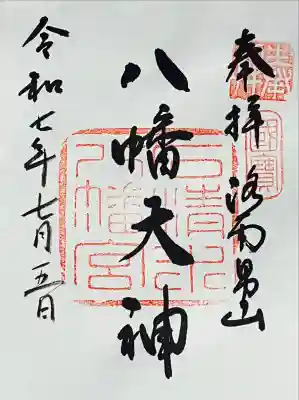 奉拝 洛南男山
國寶
八幡天神
石清水
八幡宮
令和七年七月五日